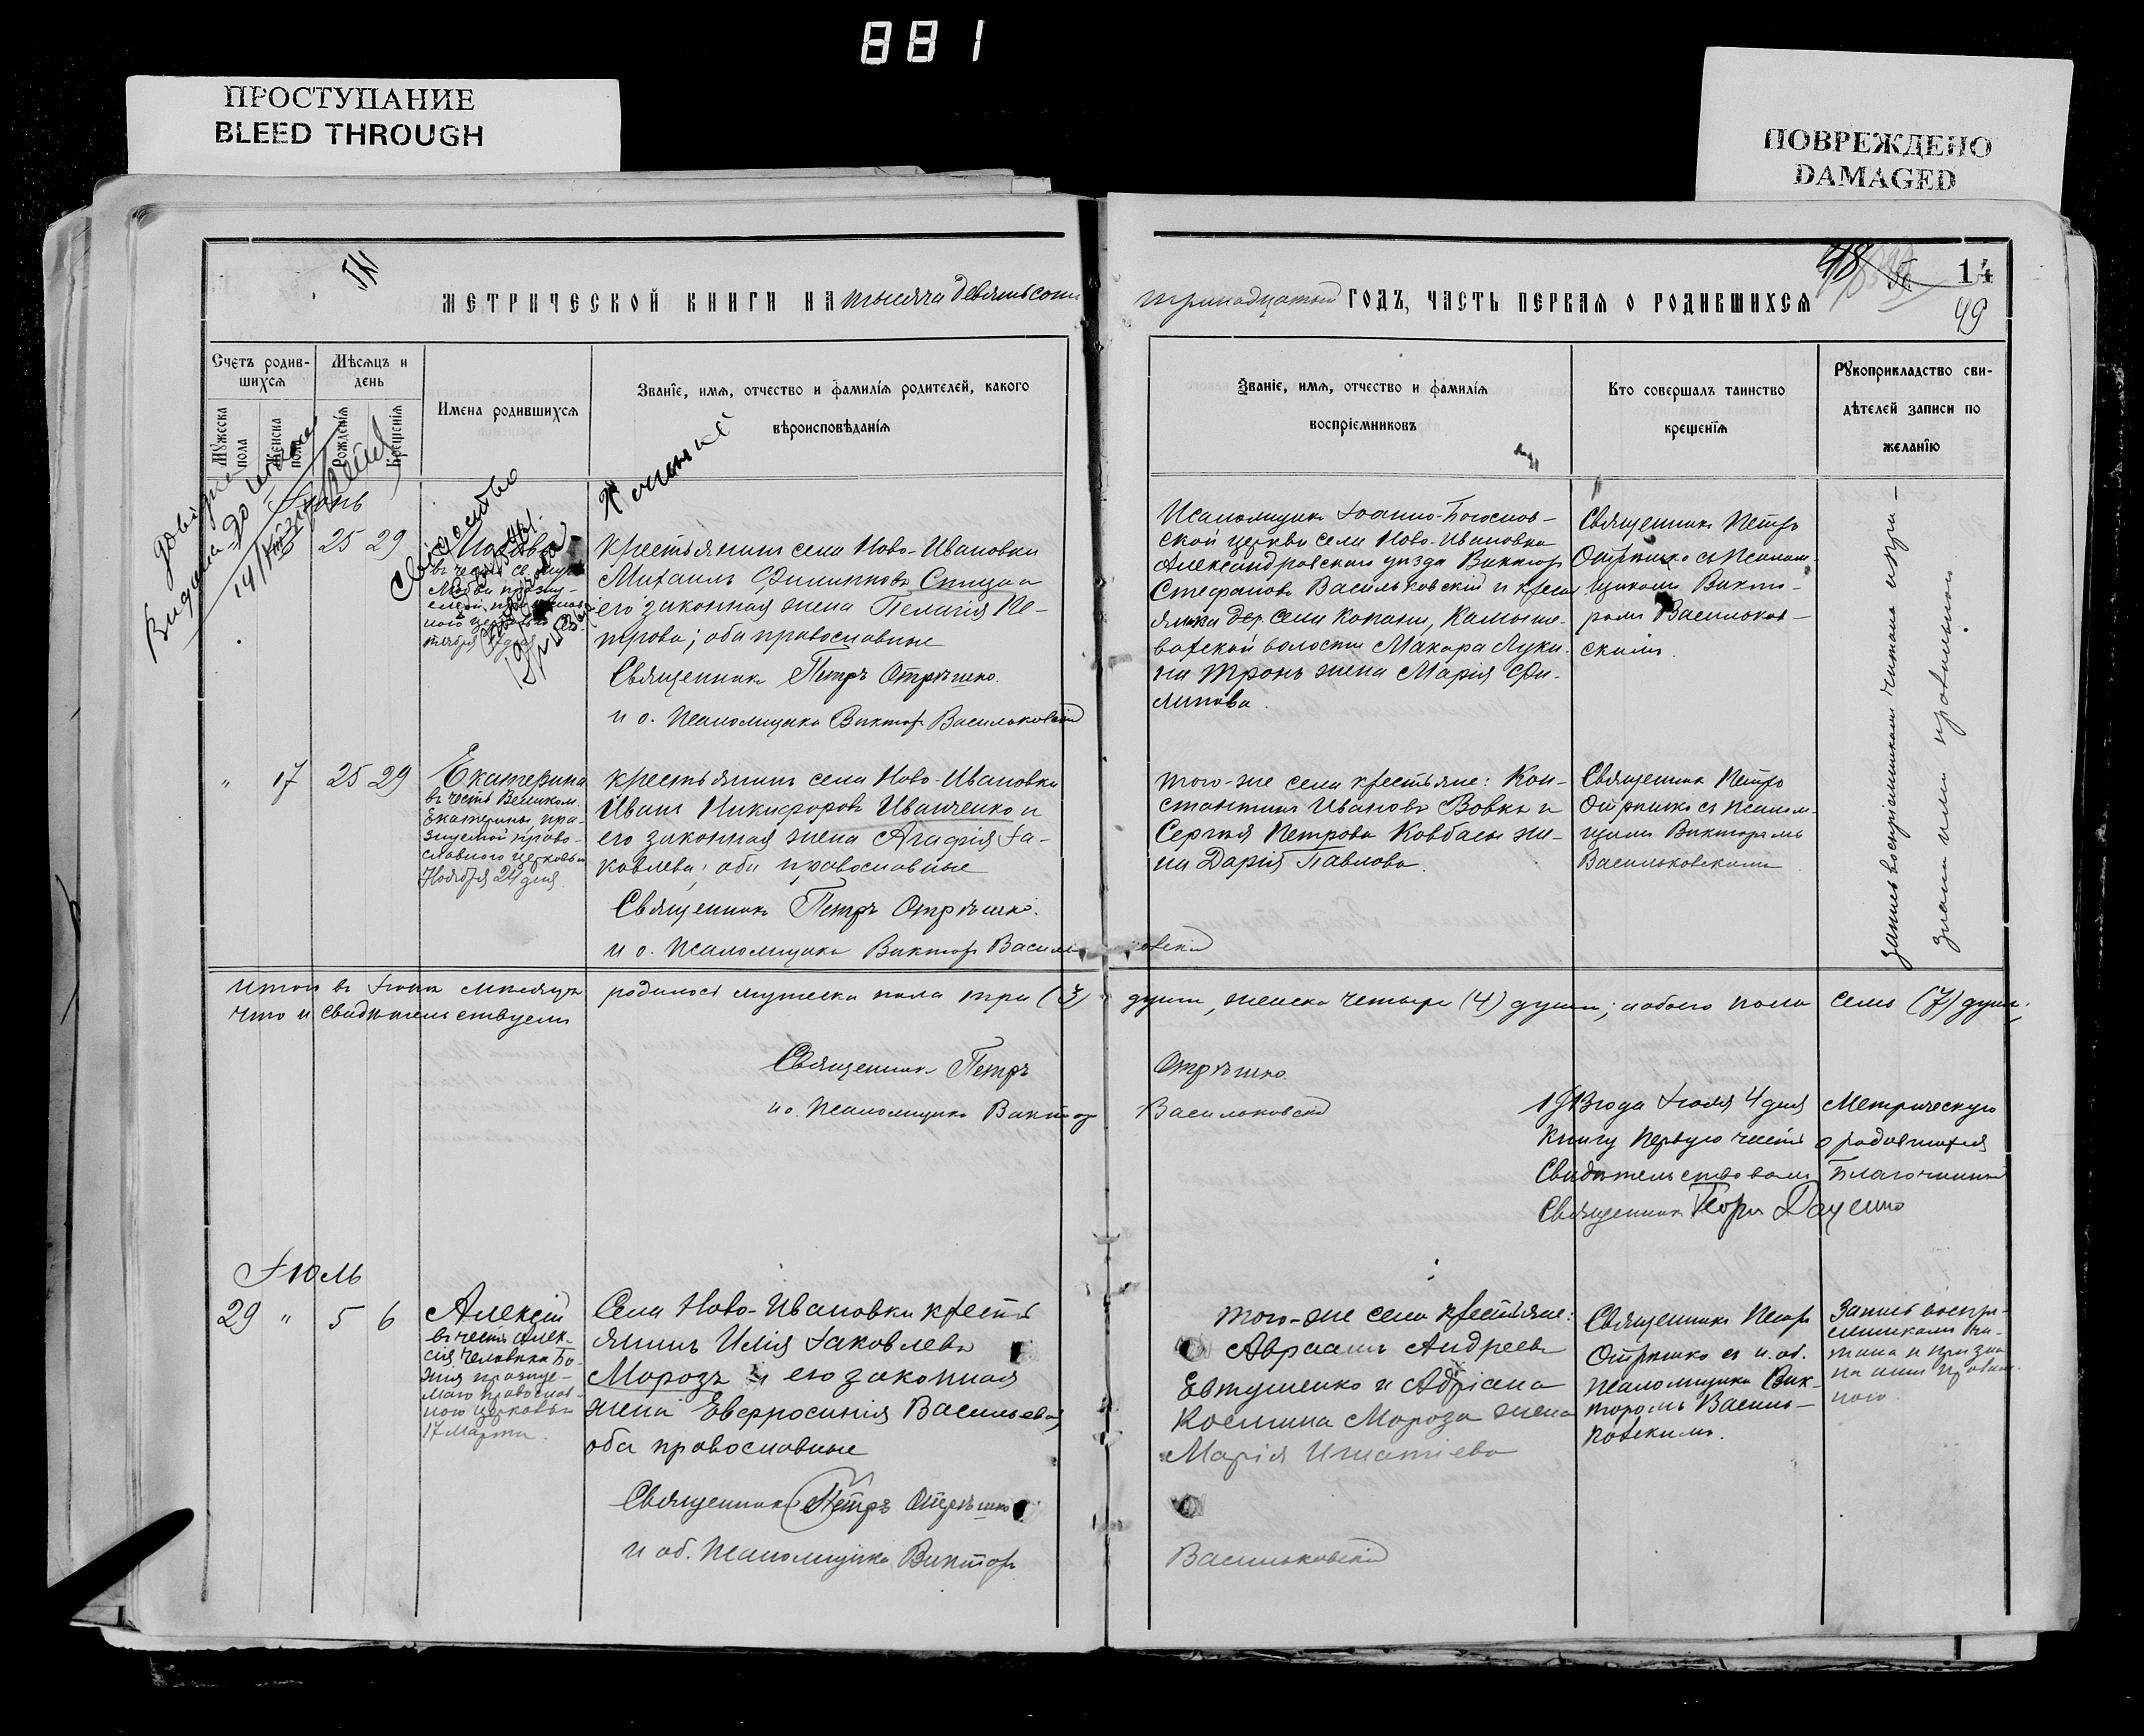 881
ПРОСТУПАНИЕ
BLEED THROUGH
ПОВРЕЖДЕНО
DAMAGED
МЕТРИЧЕСКОЙ КНИГИ НА тысяча девятьсотъ
тринадцатый ГОДЪ, ЧАСТЬ ПЕРВАЯ О РОДИВШИХСЯ
14
49
Счетъ родив-
шихся
Мужеска пола
Женска пола
Мѣсяцъ и
день
Рожденія
Крещенія
Имена родившихся
Званіе, имя, отчество и фамилія родителей, какого
вѣроисповѣданія
Званіе, имя, отчество и фамилія
воспріемниковъ
Кто совершалъ таинство
крещенія
Рукоприкладство сви-
дѣтелей записи по
желанію
Іюнь
25 29
Крестьянинъ села Ново-Ивановки
Михаилъ Филипповъ Спица и
его законная жена Пелагія Пе-
трова; оба православные
Священникъ Петръ Отрѣшко.
и о. Псаломщика Викторъ Васильковскій
Псаломщикъ Іоанно-Богослов-
ской церкви села Ново-Ивановки
Александровского уѣзда Викторъ
Стефановъ Васильковскій и крест
янина дер. села Копани, Камыше-
ватской волости Макара Луки-
на Тронь жена Марія Фи-
липова.
Священникъ Петръ
Отрѣшко съ Псалом-
щикомъ Викто-
ромъ Васильков-
скимъ.
запись воспріемникамъ читана и при-
знана ими правильною
" 17 25 29
Екатерина
въ честь Великом.
Екатерины пра-
зднуемой право-
славною церковью
Ноября 24 дня.
крестьянинъ села Ново-Ивановки
Иванъ Никифоровъ Иванченко и
его законная жена Агафія Іа-
ковлева; оба православные
Священникъ Петръ Отрѣшко.
и о. Псаломщика Викторъ Васильковскій
того-же села крестьяне: Кон-
стантинъ Ивановъ Вовкъ и
Сергѣя Петрова Ковбасы же-
на Дарія Павлова.
Священникъ Петръ
Отрѣшко съ Псалом-
щикомъ Викторомъ
Васильковскимъ
Итого въ Іюнѣ мѣсяцѣ родилось мужеска пола три (3) души, женска четыре (4) души; а обоего пола семь (7) душъ,
что и свидѣтельствуемъ
Священникъ Петръ Отрѣшко.
и о. Псаломщика Викторъ Васильковскій
1913 года Іюля 4 дня Метрическую
Книгу первую часть о родившихся
Свидѣтельствовалъ Благочинный
Священникъ
Іюль
29 " 5 6
Алексій
въ честь Алек-
сія человѣка Бо-
жія праздуе-
маго православ-
ною церковью
17 Марта.
Села Ново-Ивановки кресть
янинъ Илія Іаковлевъ
Морозъ и его законная
жена Евфросинія Васильева,
оба православные
Священникъ Петръ Отрѣшко
и об. Псаломщика Викторъ Васильковскій
того-же села крестьяне:
Авраамъ Андреевъ
Евтушенко и Адріана
Космина Мороза жена
Марія Игнатіева
Священникъ Петръ
Отрѣшко съ и. об.
псаломщика Вик-
торомъ Василь-
ковскимъ.
Запись воспрі-
емникамъ чи-
тана и призна-
на ими правиль-
ною